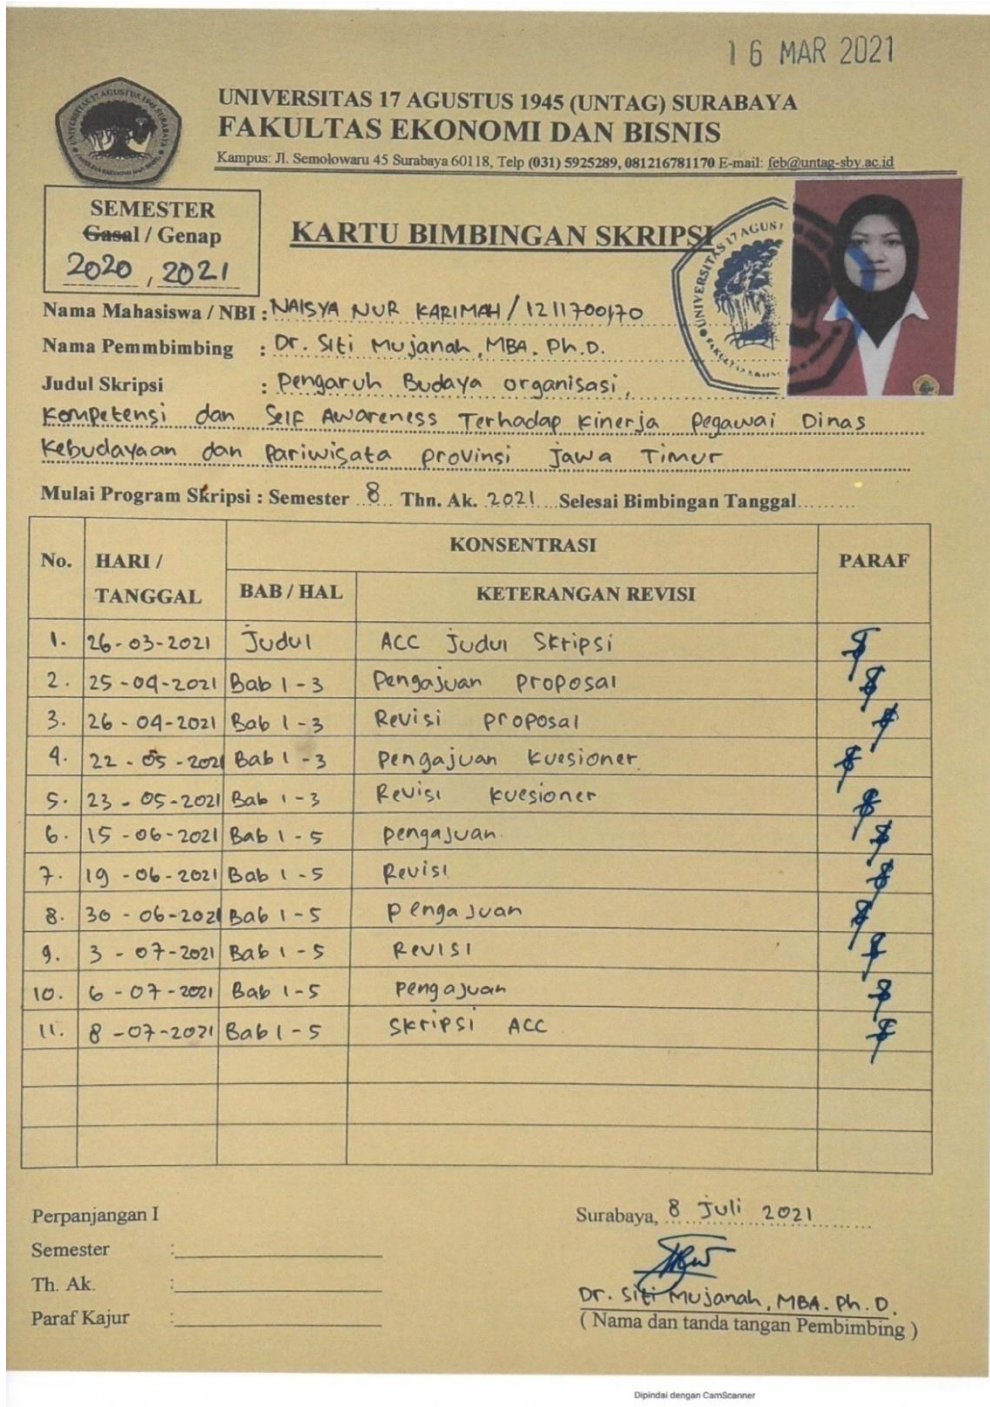 16 MAR 2021
UNIVERSITAS 17 AGUSTUS 1945 (UNTAG) SURABAYA
FAKULTAS EKONOMI DAN BISNIS
Kampus: Jl. Semolowaru 45 Surabaya 60118, Telp (031) 5925289, 081216781170 E-mail: feb@untag-sby.ac.id
SEMESTER
Gasal / Genap
2020, 2021
KARTU BIMBINGAN SKRIPSI
UNIVERSITAS 17 AGUS
Nama Mahasiswa / NBI : NAISYA NUR KARIMAH / 1211700170
Nama Pemmbimbing : Dr. Siti Mujanah, MBA. Ph.D.
Judul Skripsi : Pengaruh Budaya organisasi,
Kompetensi dan Self Awareness Terhadap Kinerja Pegawai Dinas
Kebudayaan dan Pariwisata provinsi Jawa Timur
Mulai Program Skripsi : Semester 8 Thn. Ak. 2021 Selesai Bimbingan Tanggal.........
No. HARI / TANGGAL KONSENTRASI PARAF
BAB / HAL KETERANGAN REVISI
1. 26-03-2021 Judul ACC Judul Skripsi
2. 25-04-2021 Bab 1-3 Pengajuan proposal
3. 26-04-2021 Bab 1-3 Revisi proposal
4. 22-05-2021 Bab 1-3 Pengajuan kuesioner
5. 23-05-2021 Bab 1-3 Revisi kuesioner
6. 15-06-2021 Bab 1-5 pengajuan
7. 19-06-2021 Bab 1-5 Revisi
8. 30-06-2021 Bab 1-5 pengajuan
9. 3-07-2021 Bab 1-5 Revisi
10. 6-07-2021 Bab 1-5 pengajuan
11. 8-07-2021 Bab 1-5 Skripsi ACC
Perpanjangan I
Semester :
Th. Ak. :
Paraf Kajur :
Surabaya, 8 Juli 2021
Dr. Siti Mujanah, MBA. Ph.D.
( Nama dan tanda tangan Pembimbing )
Dipindai dengan CamScanner